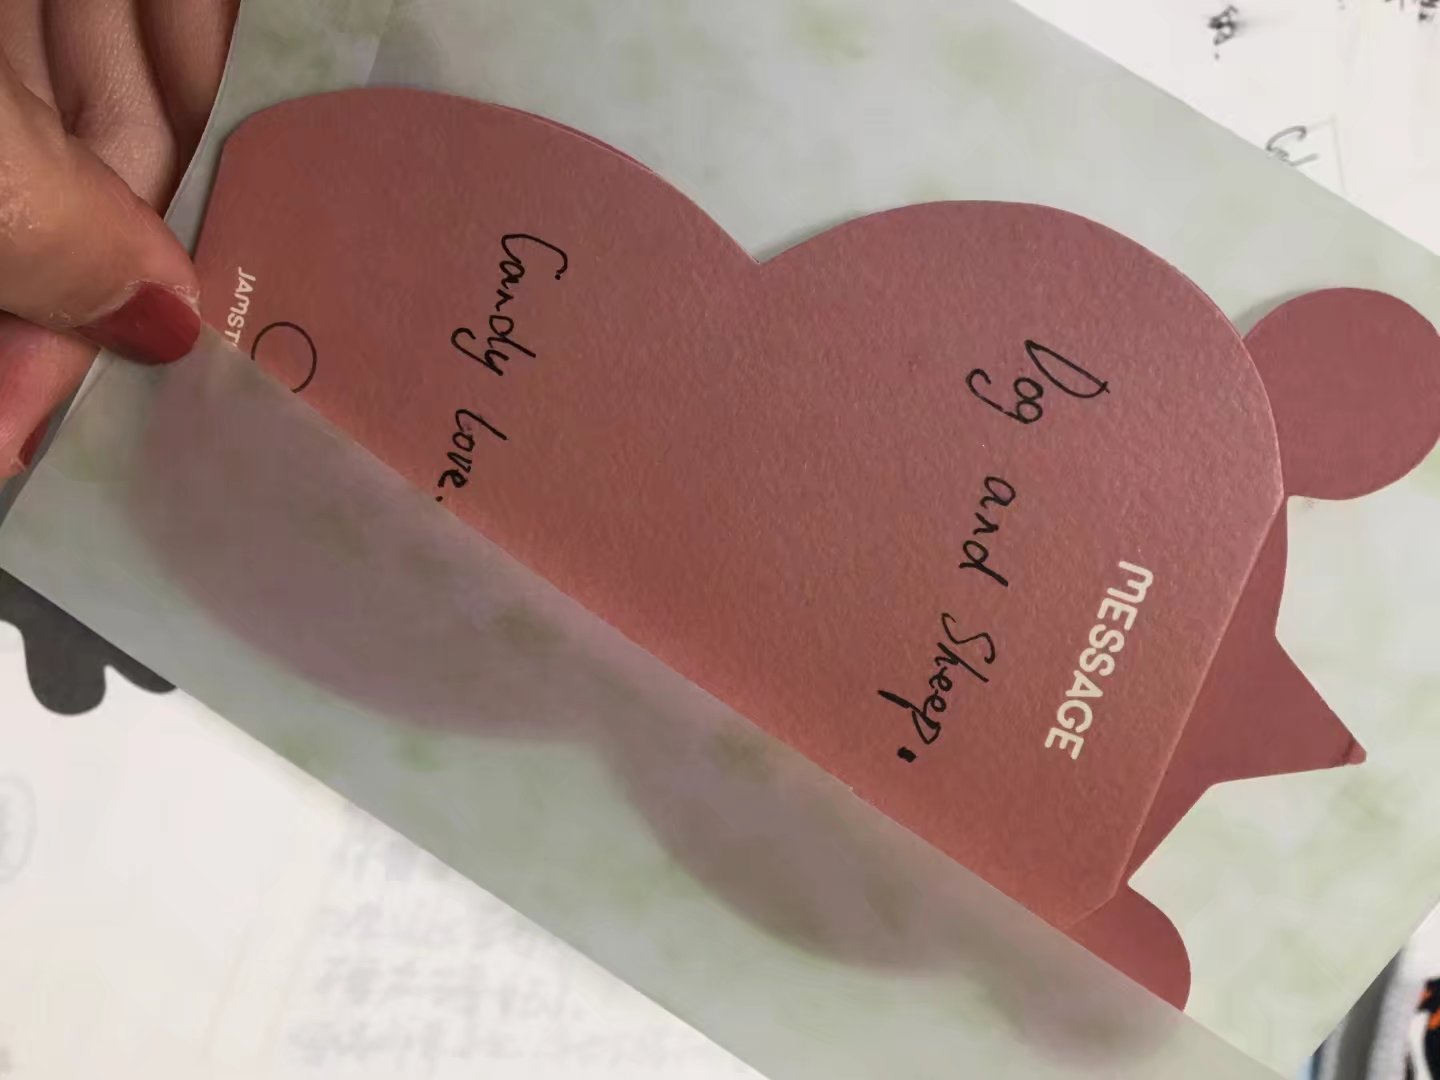 MESSAGE
Dog and Sheep.
Candy love.